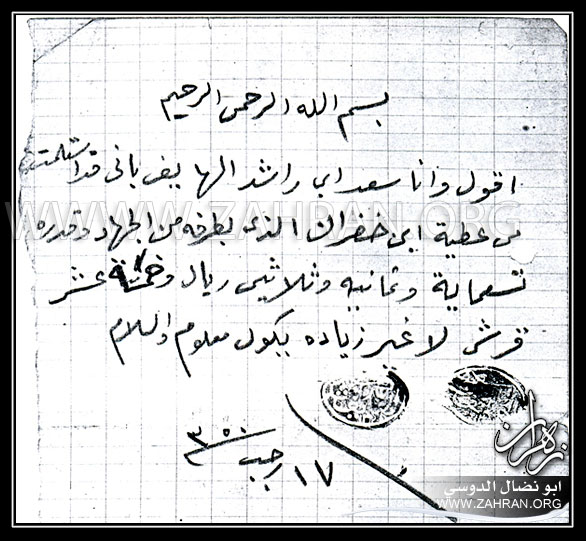 بسم الله الرحمن الرحيم
اقول وانا سعد ابن راشد الهايف باني قد استلمت
من عطية ابن خفران الذي بطرفه من الجهاد وقدره
تسعماية وثمانيه وثلاثين ريال وخمسة عشر
قرش لا غير زياده يكون معلوم والسلام
١٧ رجب ٣٥٠
WWW.ZAHRAN.ORG
زهران
ابو نضال الدوسي
WWW.ZAHRAN.ORG